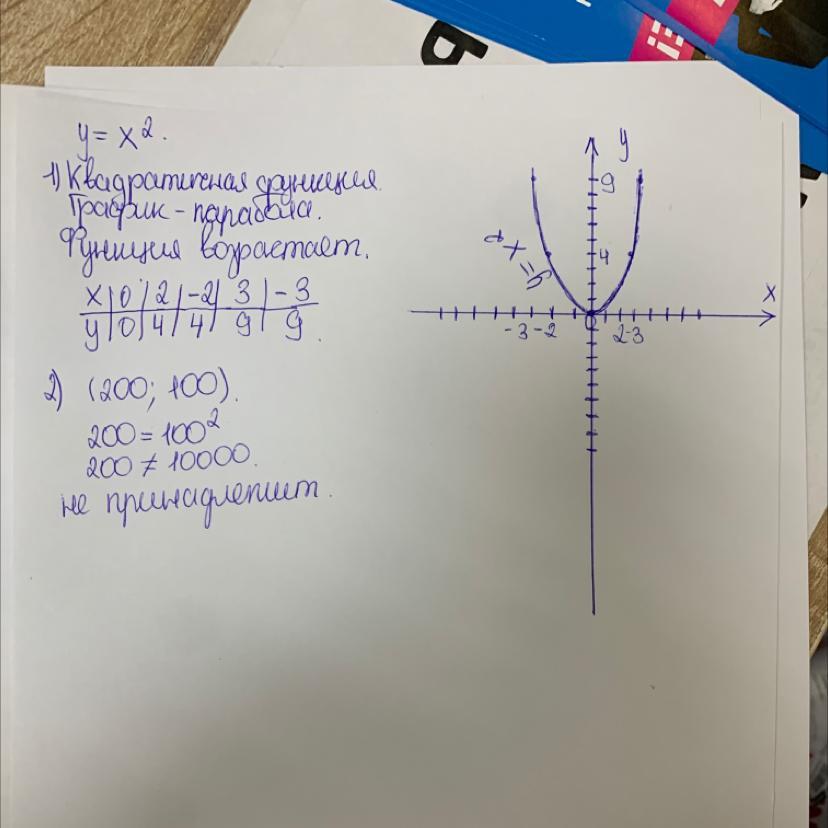 y = x².
1) Квадратичная функция.
График - парабола.
Функция возрастает.
x | 0 | 2 | -2 | 3 | -3
y | 0 | 4 | 4 | 9 | 9
2) (200; 100).
200 = 100²
200 ≠ 10000.
не принадлежит.
y
9
4
y = x²
x
-3 -2 0 2 3
ь